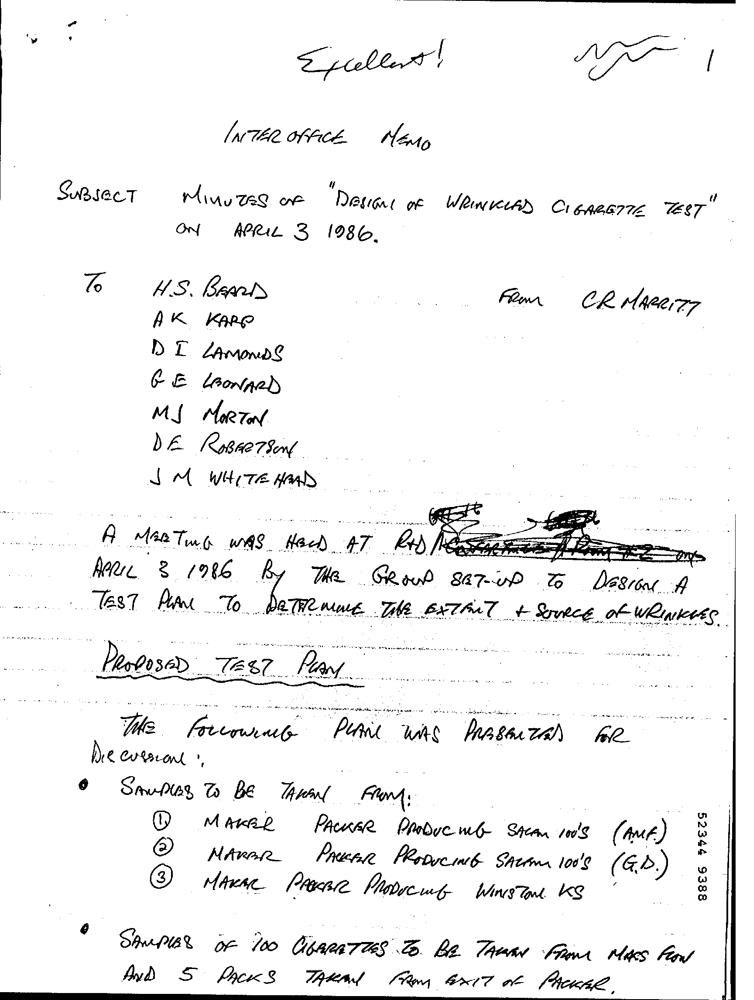 Excellent! 1
INTEROFFICE MEMO
SUBJECT MINUTES OF "DESIGN OF WRINKLED CIGARETTE TEST"
ON APRIL 3 1986.
To H.S. BEARD FROM CR MARRITT
A K KARP
D I LAMONDS
G E LEONARD
MJ MORTON
D E ROBERTSON
J M WHITEHEAD
A MEETING WAS HELD AT R+D
APRIL 3 1986 By THE GROUP SET-UP TO DESIGN A
TEST PLAN TO DETERMINE THE EXTENT + SOURCE OF WRINKLES.
PROPOSED TEST PLAN
THE FOLLOWING PLAN WAS PRESENTED FOR
DISCUSSION:
• SAMPLES TO BE TAKEN FROM:
① MAKER PACKER PRODUCING SALEM 100'S (AMF.)
② MAKER PACKER PRODUCING SALEM 100'S (G.D.)
③ MAKER PACKER PRODUCING WINSTON KS
• SAMPLES OF 100 CIGARETTES TO BE TAKEN FROM MASS FLOW
AND 5 PACKS TAKEN FROM EXIT OF PACKER.
52344 9388